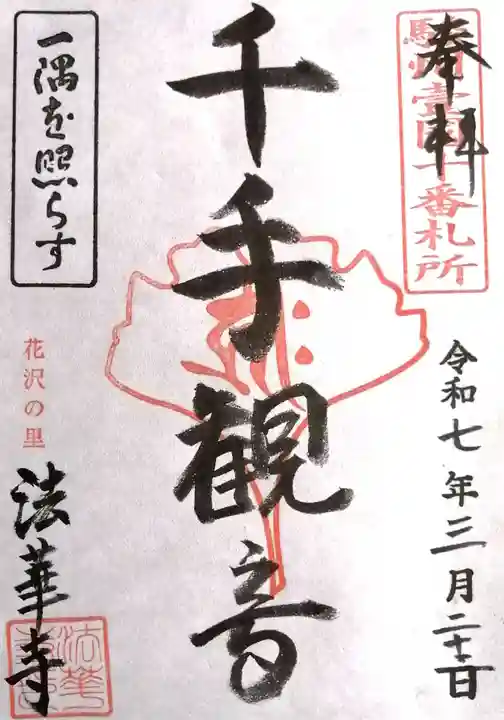 奉拝
駿州壹国十番札所
令和七年三月二十日
千手観音
一隅を照らす
花沢の里
法華寺
法華寺